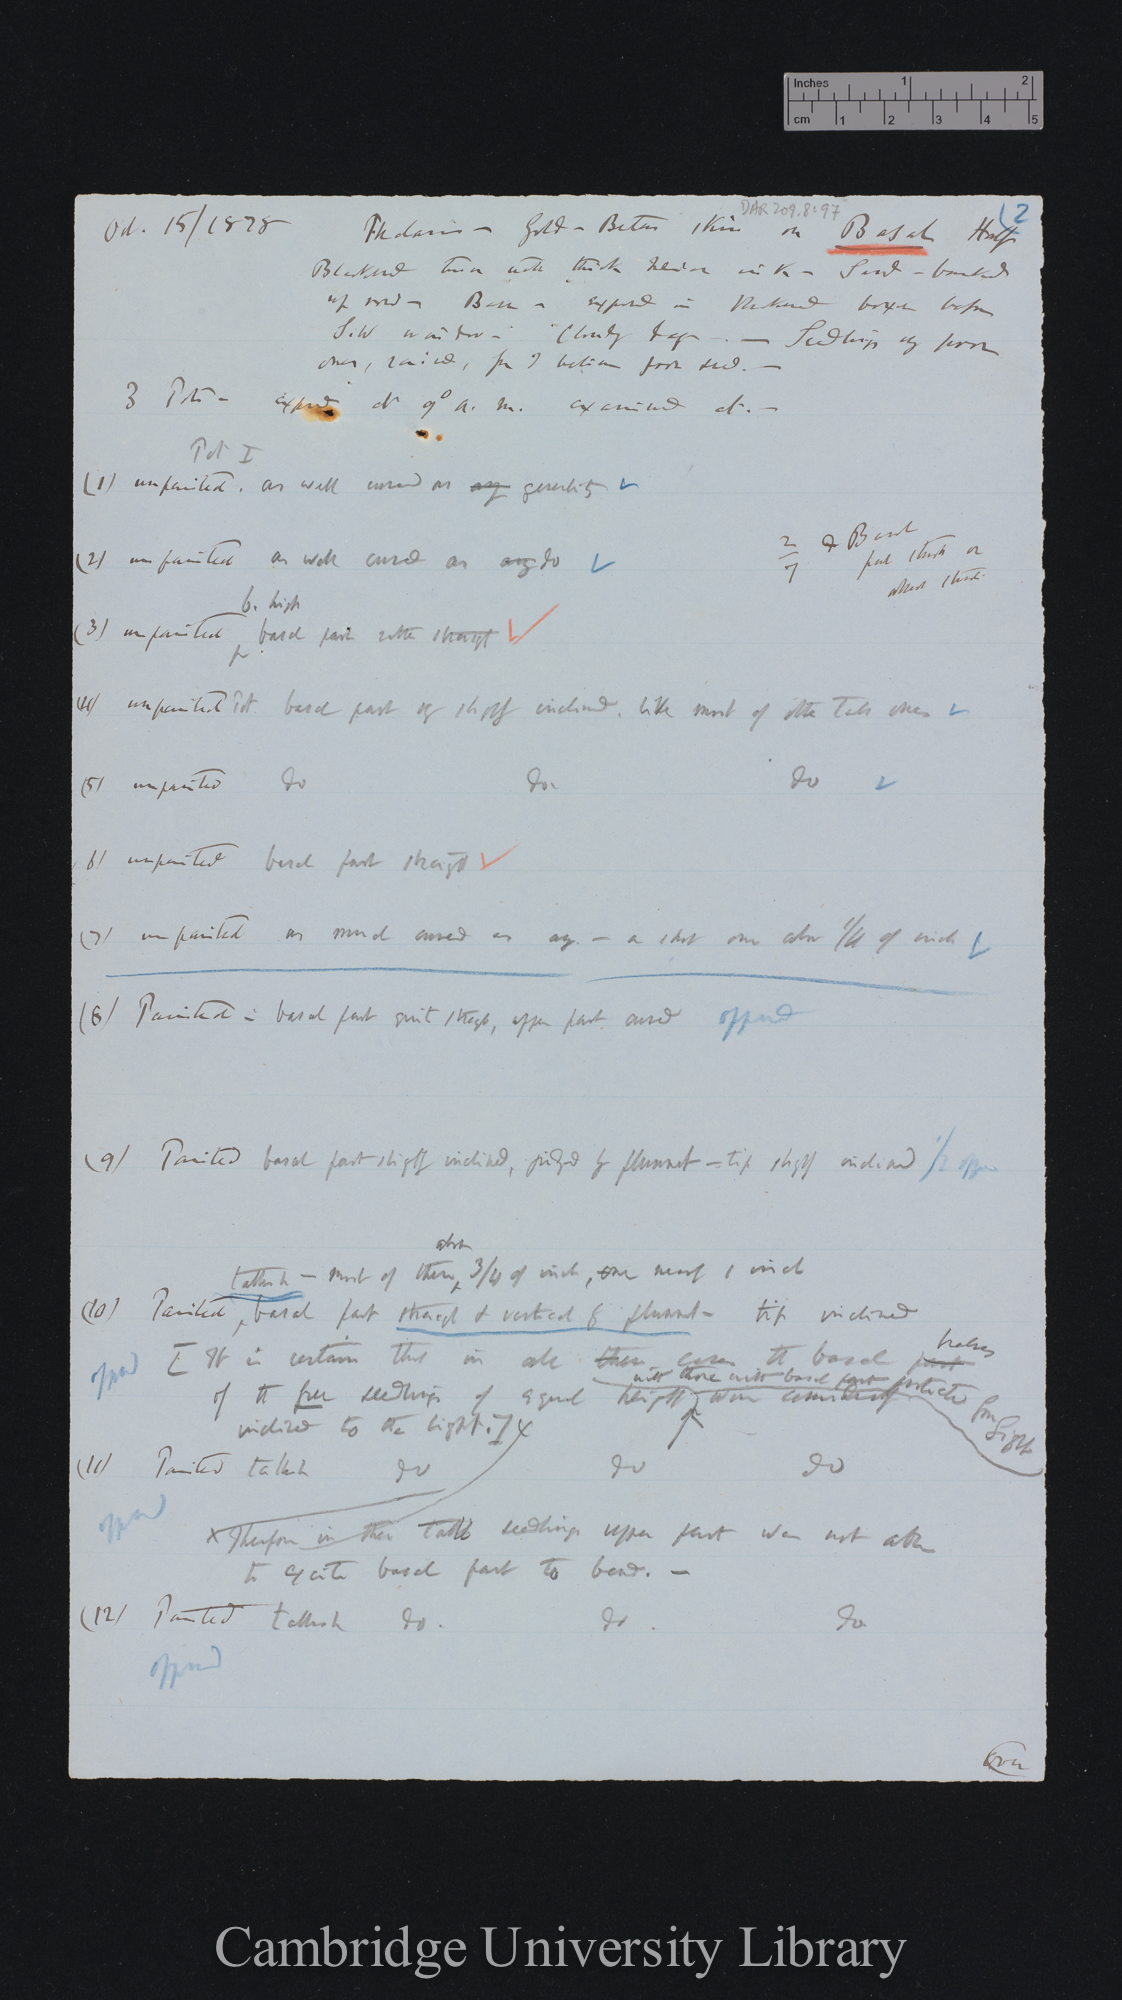 Inches 1 2
cm 1 2 3 4 5
DAR 209.8:97
(2
Oct. 15/1878 Phalaris — Gold-Beaters skin on Basal Half
Blackened then with thick Indian ink — Sand — banked
up round — Base — exposed in blackened boxes before
S.W window — Cloudy day — Seedlings
ones, raised, from bottom poor seed. —
3 Pots — exposed at 9° a. m. examined at. —
Pot I
(1) unpainted. as well curved as any generality
(2) unpainted as well curved as any do
2/7 Basal part straight or almost
(3) unpainted basal part rather straight
(4) unpainted Pot. basal part slightly inclined. like most of other tall ones
(5) unpainted do do. do
6) unpainted basal part straight
(7) unpainted as much curved as any. — a short one about 1/4 of inch
(8) Painted — basal part quite straight, upper part curved opposed
(9) Painted basal part slightly inclined, judged by plummet — tip slightly inclined 1/2 oppo
about
tallish — most of them 3/4 of inch, one nearly 1 inch
(10) Painted basal part straight & vertical by plummet — tip inclined
opposed
[It is certain that in all these cases the basal part halves
with those with basal part protected from light
of the free seedlings of equal height were considerably
inclined to the light.] x
(11) Painted tallish do do do
opposed
x Therefore in these tall seedlings upper part was not able
to excite basal part to bend. —
(12) Painted tallish do. do. do
opposed
Over
Cambridge University Library